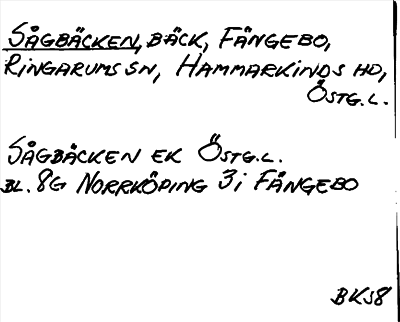 SÅGBÄCKEN, BÄCK, FÅNGEBO,
RINGARUMS SN, HAMMARKINDS HD,
ÖSTG.L.
SÅGBÄCKEN EK ÖSTG.L.
BL. 8G NORRKÖPING 3i FÅNGEBO
BKS8